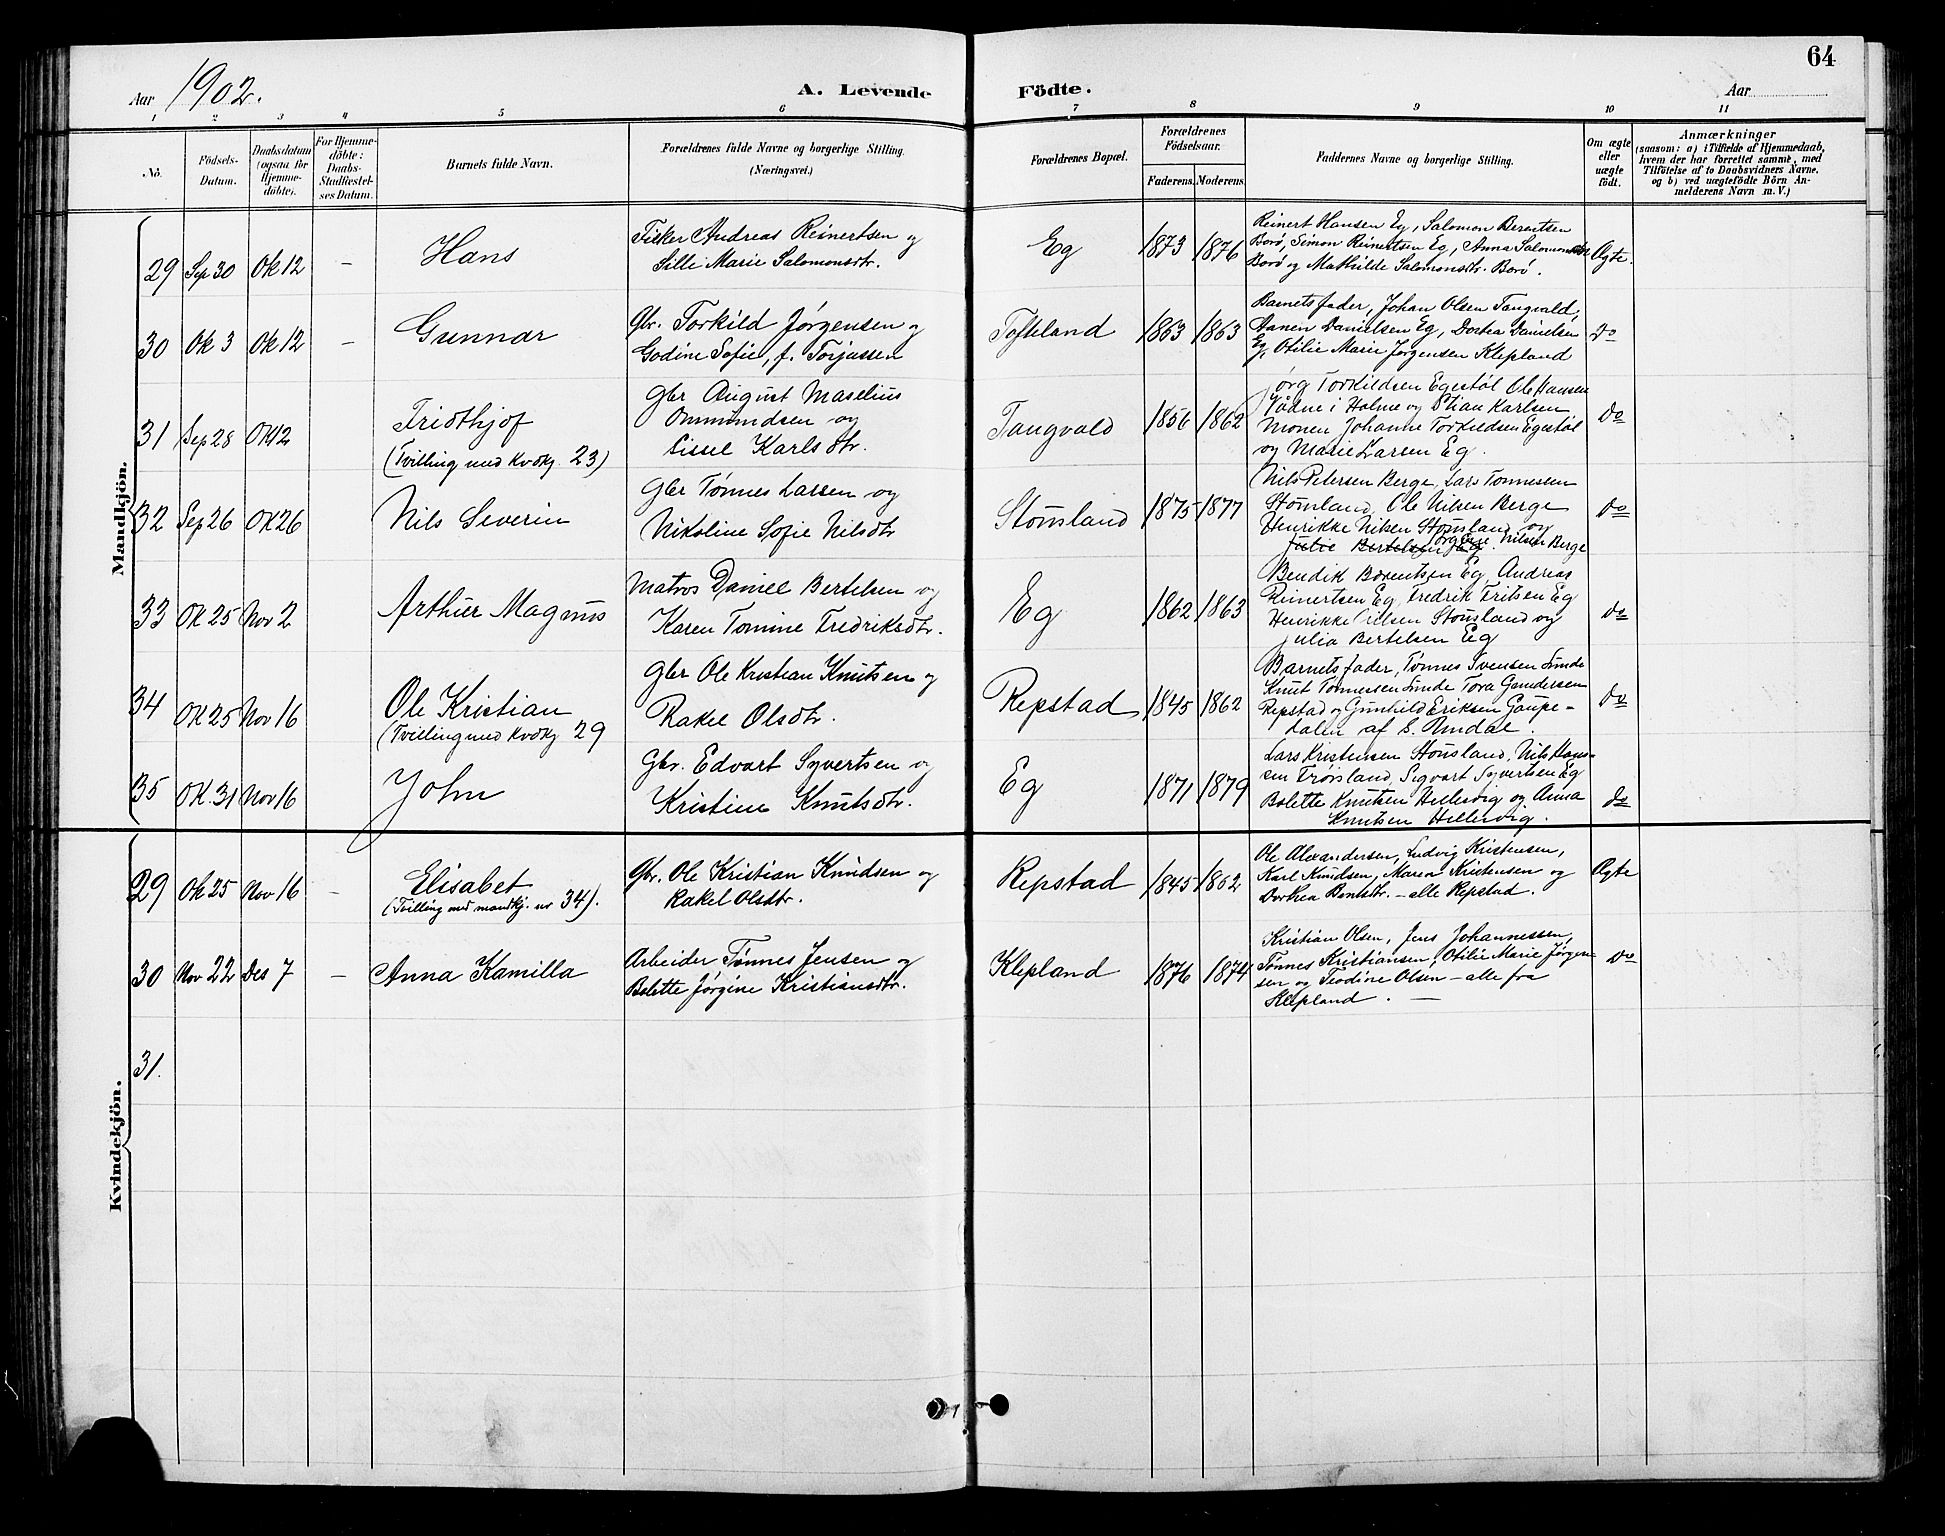 64
Aar 1902.
A. Levende Födte.
Aar
1 2 3 4 5 6 7 8 9 10 11
No.
Födsels-Datum.
Daabsdatum (ogsaa for Hjemmedöbte).
For Hjemmedöbte: Daabs-Stadfæstelses Datum.
Barnets fulde Navn.
Forældrenes fulde Navne og borgerlige Stilling. (Næringsvei.)
Forældrenes Bopæl.
Forældrenes Födselsaar.
Faderens. Moderens.
Faddernes Navne og borgerlige Stilling.
Om ægte eller uægte födt.
Anmærkninger
(saasom: a) i Tilfælde af Hjemmedaab, hvem der har forrettet samme, med Tilföielse af to Daabsvidners Navne, og b) ved uægtefödte Börn Anmelderens Navn m. V.)
Mandkjön.
29 Sep 30 Ok 12 –
Hans
Fisker Andreas Reinertsen og
Sille Marie Salomonsdtr.
Eg 1873 1876
Reinert Hansen Eg, Salomon Berentsen
Borø, Simon Reinertsen Eg, Anna Salomonsdtr
Borø og Mathilde Salomonsdtr. Borø.
Ægte.
30 Ok 3 Ok 12 –
Gunnar
Gbr. Torkild Jørgensen og
Godine Sofie, f. Torjussen
Tofteland 1863 1863
Barnets fader, Johan Olsen Tangvald,
Danielsen Eg, Dorthea Danielsen
Eg, Otilie Marie Jørgensen Klepland
Do
31 Sep 28 Ok 12
Fridthjof
(Tvilling med Kvdkj. 23)
Gbr August Maselius
Ommundsen og
Sissel Karlsdtr.
Tangvald 1856 1862
Jørg Torkildsen Egestøl Ole Hansen
i Holme og Stian Karlsen
Monen Johanne Torkildsen Egestøl
og Marie Larsen Eg.
Do
32 Sep 26 Ok 26
Nils Severin
Gbr Tønnes Larsen og
Nikoline Sofie Nilsdtr
Stousland 1875 1877
Nils Petersen Berge, Lars Tønnessen
Stousland, Ole Nilsen Berge
Henrikke Nilsen Stousland og
Julie Bertelsen Eg. Jørgine Nilsen Berge
Do
33 Ok 25 Nov 2
Arthur Magnus
Matros Daniel Bertelsen og
Karen Tomine Fredriksdtr.
Eg 1862 1863
Bendik Berentsen Eg, Andreas
Reinertsen Eg, Fredrik Fritsen Eg
Henrikke Nilsen Stousland og
Julia Bertelsen Eg
Do
34 Ok 25 Nov 16
Ole Kristian
(Tvilling med Kvdkj 29
Gbr Ole Kristian Knutsen og
Rakel Olsdtr.
Repstad 1845 1862
Barnets fader, Tønnes Svensen Lunde
Knut Tønnessen Lunde Tora Gundersen
Repstad og Gunhild Eriksen Gaupe-
dalen af S. Undal.
Do
35 Ok. 31 Nov 16
John
Gbr. Edvart Syvertsen og
Kristine Knutsdtr.
Eg 1871 1879
Lars Kristensen Stousland, Nils Han-
sen Trøisland, Sigvart Syvertsen Eg
Bolette Knutsen Hellevig og Anna
Knutsen Hellevig.
do
Kvindekjön.
29 Ok 25 Nov 16 –
Elisabet
(Tvilling med mandkj. nr 34).
Gbr. Ole Kristian Knudsen og
Rakel Olsdtr.
Repstad 1845 1862
Ole Alexandersen, Ludvig Kristensen,
Karl Knudsen, Maren Kristensen og
Dorthea Berntsdtr. – alle Repstad.
Ægte
30 Nov 22 Des 7 –
Anna Kamilla
Arbeider Tønnes Jensen og
Bolette Jørgine Kristiansdtr.
Klepland 1876 1874
Kristian Olsen, Jens Johannessen,
Tønnes Kristiansen, Otilie Marie Jørgen-
sen og Teodine Olsen – alle fra
Klepland. –
Do
31.